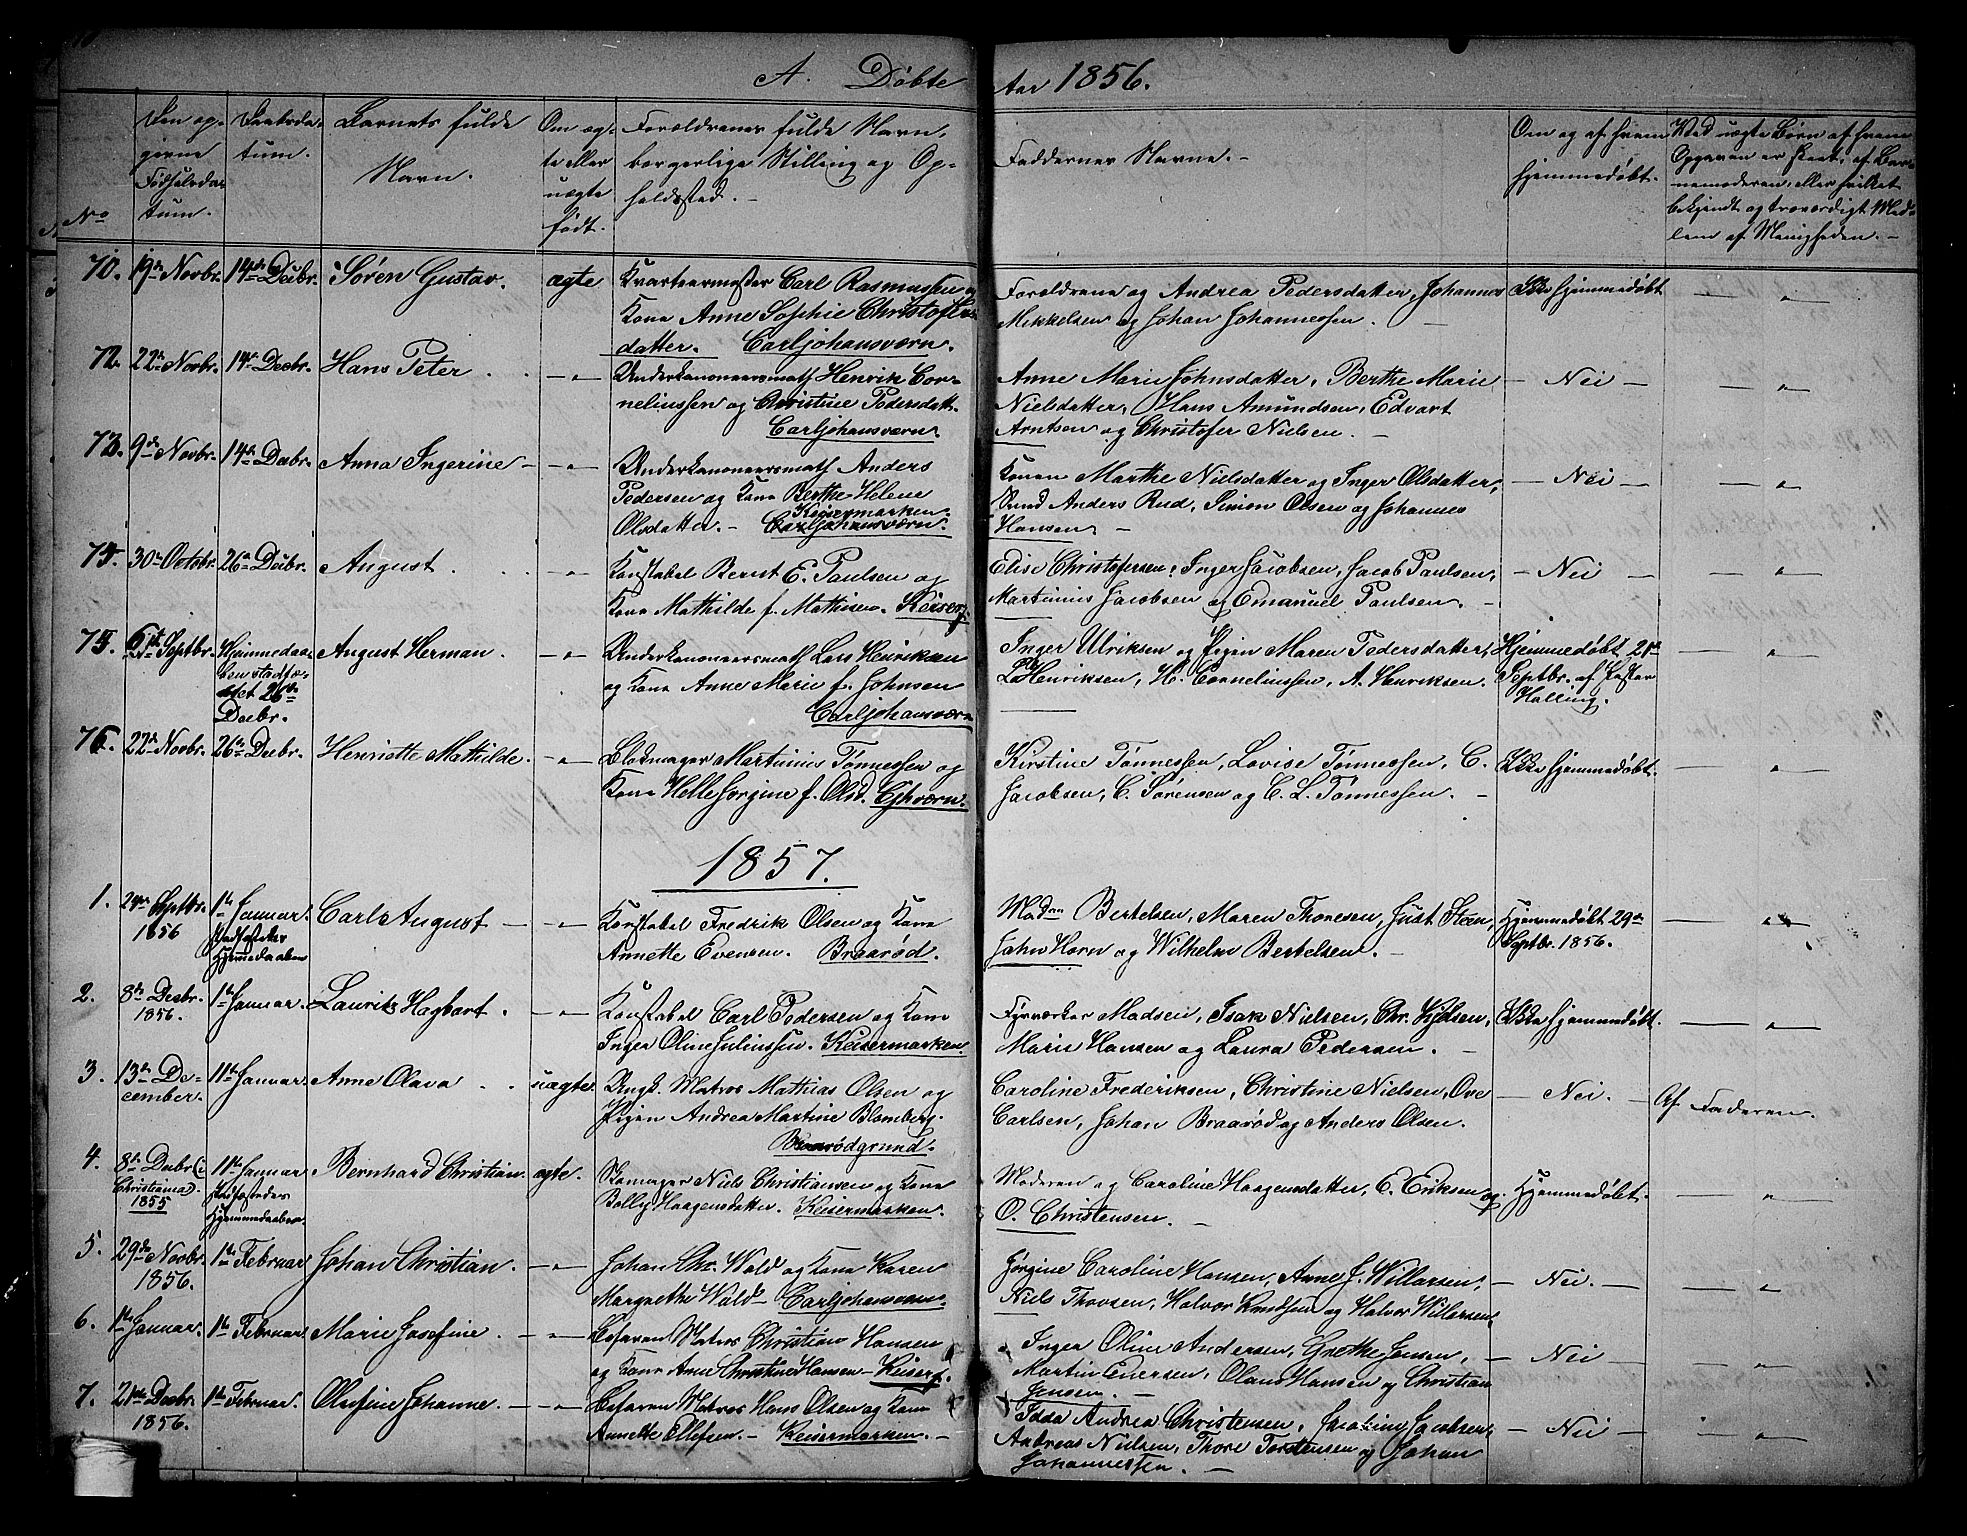 A. Døbte Aar 1856.
No
Den op-
givne
Fødselsda-
tum.
Daabsda-
tum.
Barnets fulde
Navn.
Om æg-
te eller
uægte
født.
Forældrenes fulde Navn,
borgerlige Stilling og Op-
holdssted. -
Faddernes Navne. -
Om og af hvem
hjemmedøbt.
Ved uægte Børn af hvem
Opgaven er skeet, af Bar-
nemoderen, eller hvilket
bekjendt og troværdigt Med-
lem af Menigheden. -
70. 19de Novbr. 14de Decbr. Søren Gustav. ægte
Kvarteermester Carl Rasmussen og
Kone Anne Sophie Christofers-
datter. Carljohansværn.
Forældrene og Andrea Pedersdatter, Johannes
Mikkelsen og Johan Johannessen. -
Ikke hjemmedøbt
72. 22de Novbr. 14de Decbr. Hans Peter
Underkanoneersmath Henrik Cor-
neliussen og Christine Pedersdatt.
Carljohansværn.
Anne Marie Johnsdatter, Berthe Marie
Nielsdatter, Hans Amundsen, Edvart
Arntsen og Christofer Nielsen. -
- Nei -
73. 9de Novbr. 14de Decbr. Anna Ingerine
Underkanoneersmath Anders
Pedersen og Kone Berthe Helene
Olsdatter. - Keisermarken.
Carljohansværn.
Konen Marthe Nielsdatter og Inger Olsdatter,
Svend Anders Rud, Simon Olsen og Johannes
Hansen. -
- Nei -
74. 30te Octobr. 26de Decbr. August
Konstabel Bernt E. Paulsen og
Kone Mathilde f. Mathisen. Keiserg.
Elise Christofersen, Inger Jacobsen, Jacob Paulsen,
Martinius Jacobsen og Emanuel Paulsen. -
- Nei -
75. 6te Septbr. Hjemmedaa-
ben stadfæ-
stet 26de
Decbr.
August Herman.
Underkanoneersmath Lars Henriksen
og Kone Anne Marie f. Johnsen
Carljohansværn
Inger Ulriksen og Pigen Maren Pedersdatter,
L. Henriksen, H. Corneliussen, A. Henriksen.
Hjemmedøbt 21de
Septbr. af Pastor
Halling.
76. 22de Novbr. 26de Decbr. Henriette Mathilde.
Blokmager Martinius Tønnessen og
Kone Helle Jorgine f. Olsd. Cjhværn.
Kirstine Tønnessen, Lovise Tønnessen, C.
Jacobsen, C. Sørensen og C. L. Tønnessen. -
Ikke hjemmedøbt.
1857.
1. 29de Septbr.
1856
1te Januar.
Hjemmedaaben
Carl August
Konstabel Fredrik Olsen og Kone
Annette Evensen. Braarød.
Madam Bertelsen, Maren Thoresen, Just Steen,
John Horn og Wilhelm Bertelsen. -
Hjemmedøbt 29de
Septbr. 1856.
2. 8de Decbr.
1856.
1te Januar. Laurits Hagbart.
Konstabel Carl Pedersen og Kone
Inger Oline Juliussen. Keisermarken.
Fyrværker Madsen, Isak Nielsen, Chr.
Marie Hansen og Laura Pedersen. -
Ikke hjemmedøbt.
3. 13de De-
cember.
11te Januar. Anne Olava. uægte.
Ungk. Matros Mathias Olsen og
Pigen Andrea Martine Blomberg.
Braarødgrund.
Caroline Frederiksen, Christine Nielsen, Ove
Carlsen, Johan Braarød og Anders Olsen.
- Nei. -
Af Faderen.
4. 8de Decbr. (i
Christiania).
1855
11te Januar
Hjemmedaaben
Bernhard Christian. ægte.
Niels Christiansen og Kone
Bolly Haagensdatter. Keisermarken.
Moderen og Caroline Haagensdatter, E. Eriksen og
O. Christensen. -
Hjemmedøbt.
5. 29de Novbr.
1856.
1te Februar Johan Christian.
Johan Chr. Wold og Kone Karen
Margrethe Wold - Carljohansværn.
Jørgine Caroline Hansen, Anne J. Willarsen,
Niels Thovsen, Halvor Knudsen og Halvor Willersen,
- Nei. -
6. 1te Januar. 1te Februar. Marie Josefine.
Befaren Matros Christian Hansen
og Kone Anne Christine Hansen - Keiserg.
Inger Oline Andersen, Grethe Jensen,
Martin Eversen, Olaus Hansen og Christian
Jensen. -
- Nei -
7. 21de Decbr.
1856.
1te Februar. Olefine Johanne.
Befaren Matros Hans Olsen og Kone
Annette Ellefsen. - Keisermarken. -
Idda Andrea Christensen, Jacobine Jacobsen,
Andreas Nielsen, Thore Torstensen og Johan
Johannessen. -
- Nei